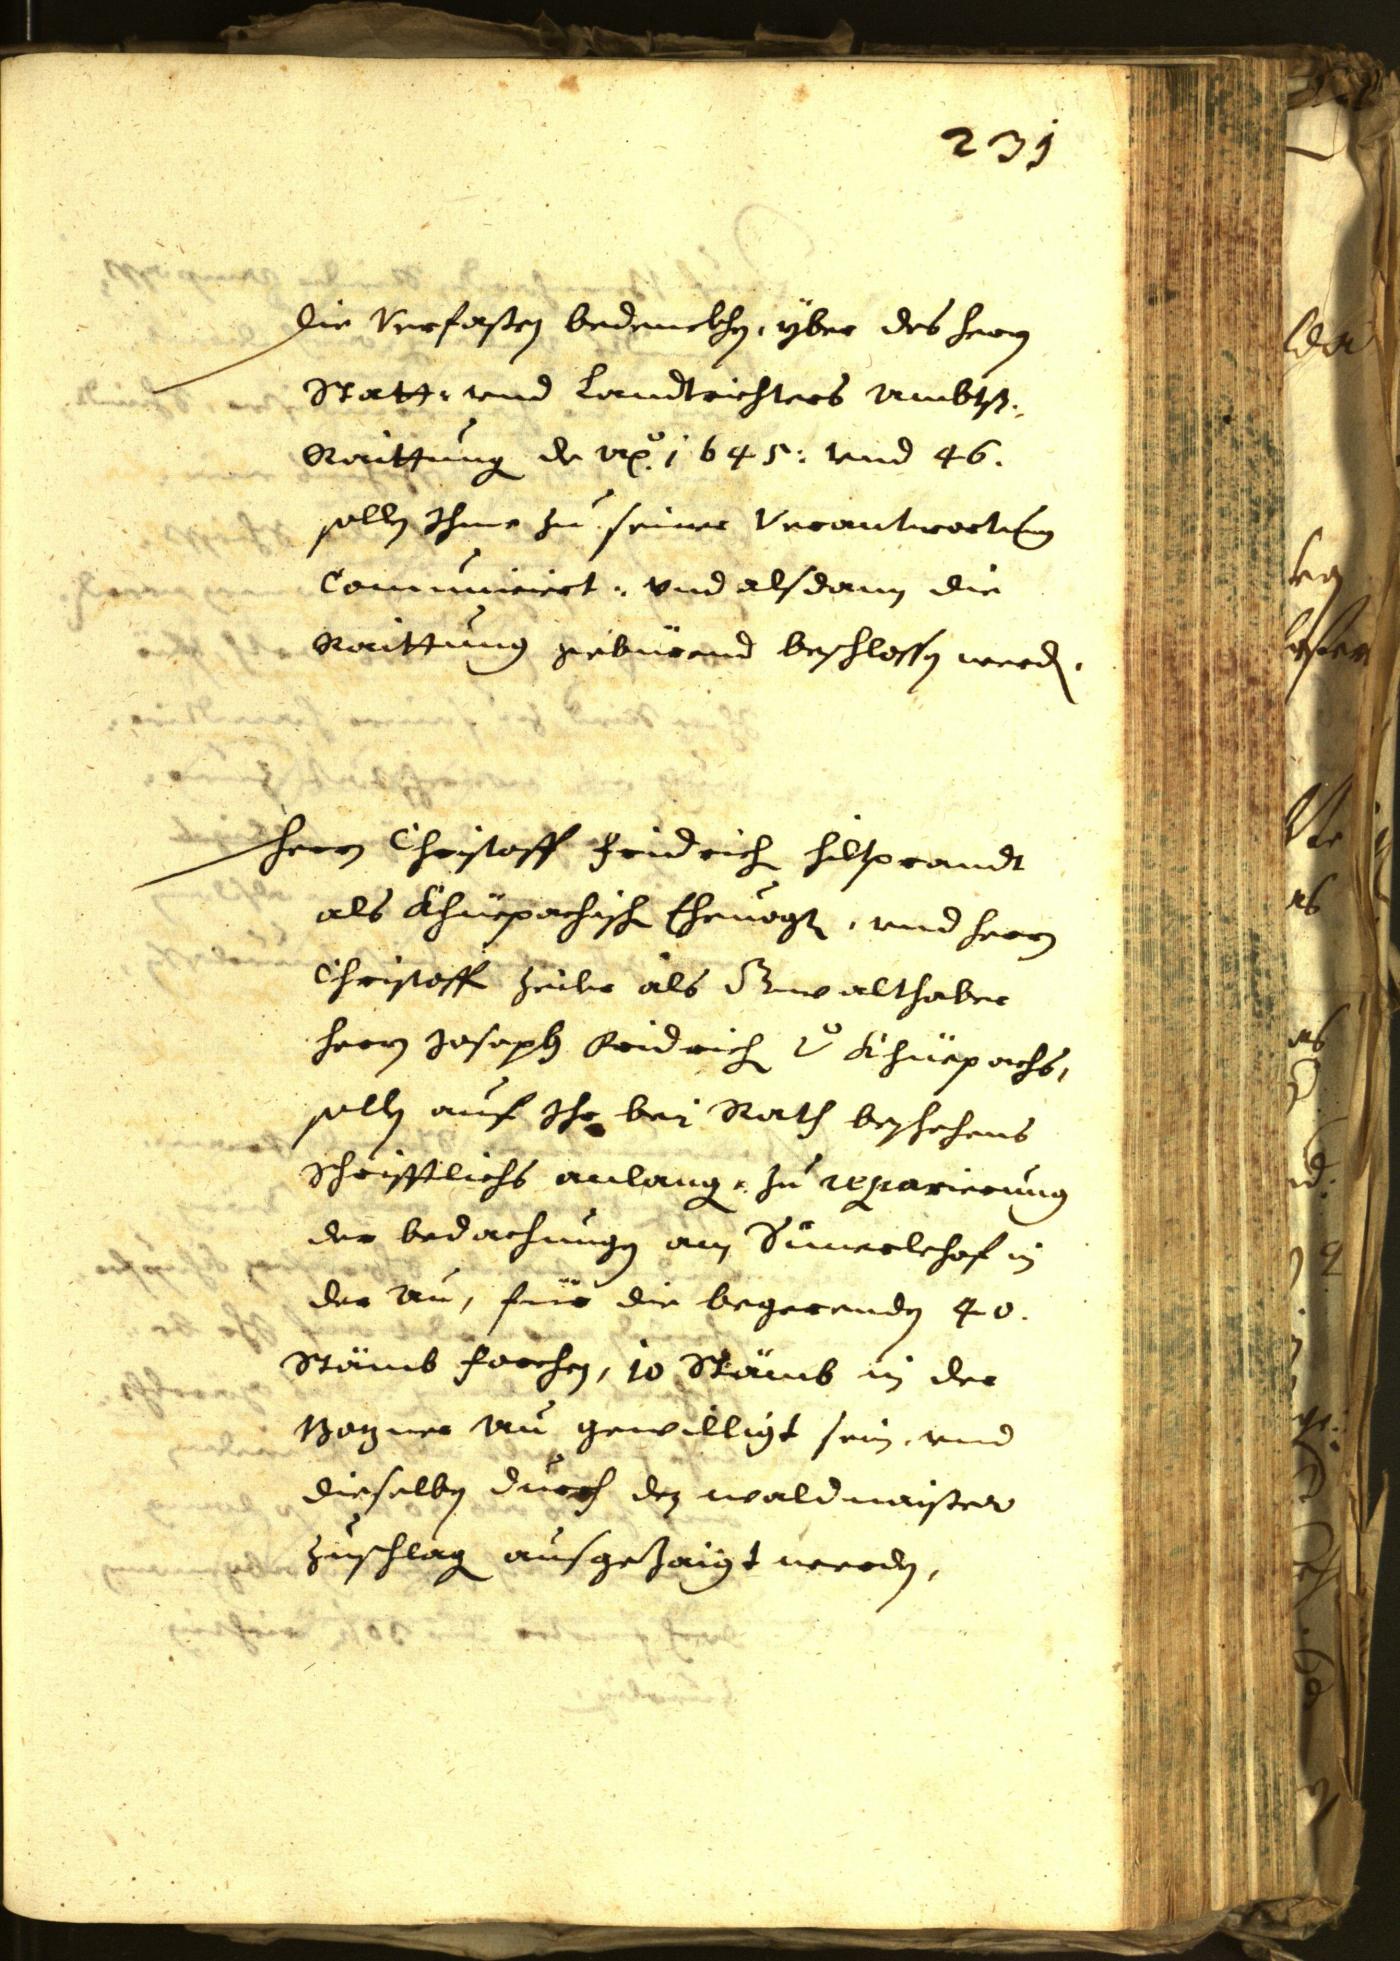 231
Die Verfassten bedenckhen, yber des herrn
Statt- vnd Landtrichters Ambts-
Raittung de Ao. 1645: vnd 46.
sollen Ihme zu seiner Verantwortung
Communiciert, vnd alsdann die
Raittung gebürend beschlossen werden.
Herrn Christoff Fridrich hiltprandt
als Khüepachisch Ehevogt, vnd herrn
Christoff Zeiler als Gwalthaber
herrn Joseph Fridrich v. Khüepachs,
sollen auf Ihr bei Rath beschehens
schrifftlichs anlang, zu reparierung
der bedachungen am Sümerlehof in
der Au, für die begerenden 40.
Stämb forchen, 10 Stämb in der
Bozner Au gewilligt sein, vnd
dieselben durch den waldmaister
Zuschlag ausgezaigt werden,